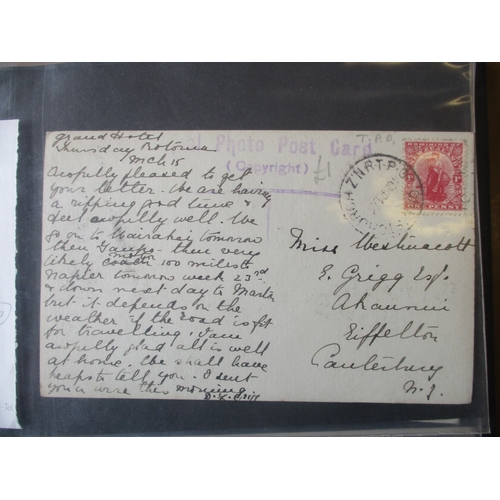 Grand Hotel
Thursday Rotorua
Mch 15
Awfully pleased to get
your letter. We are having
a ripping good time &
feel awfully well. We
go on to Wairakei tomorrow
then Taupo then very
likely motor coach 100 miles to
Napier tomorrow week 23rd
& down next day to
but it depends on the
weather if the road is fit
for travelling. I am
awfully glad all is well
at home. We shall have
heaps to tell you. I sent
you a wire this morning
Photo Post Card
(Copyright)
£1
T.P.O.
N.Z. R.T.P.O.
PENNY
Miss Westmacott
E. Grigg Esq.
Eiffelton
Canterbury
N.Z.